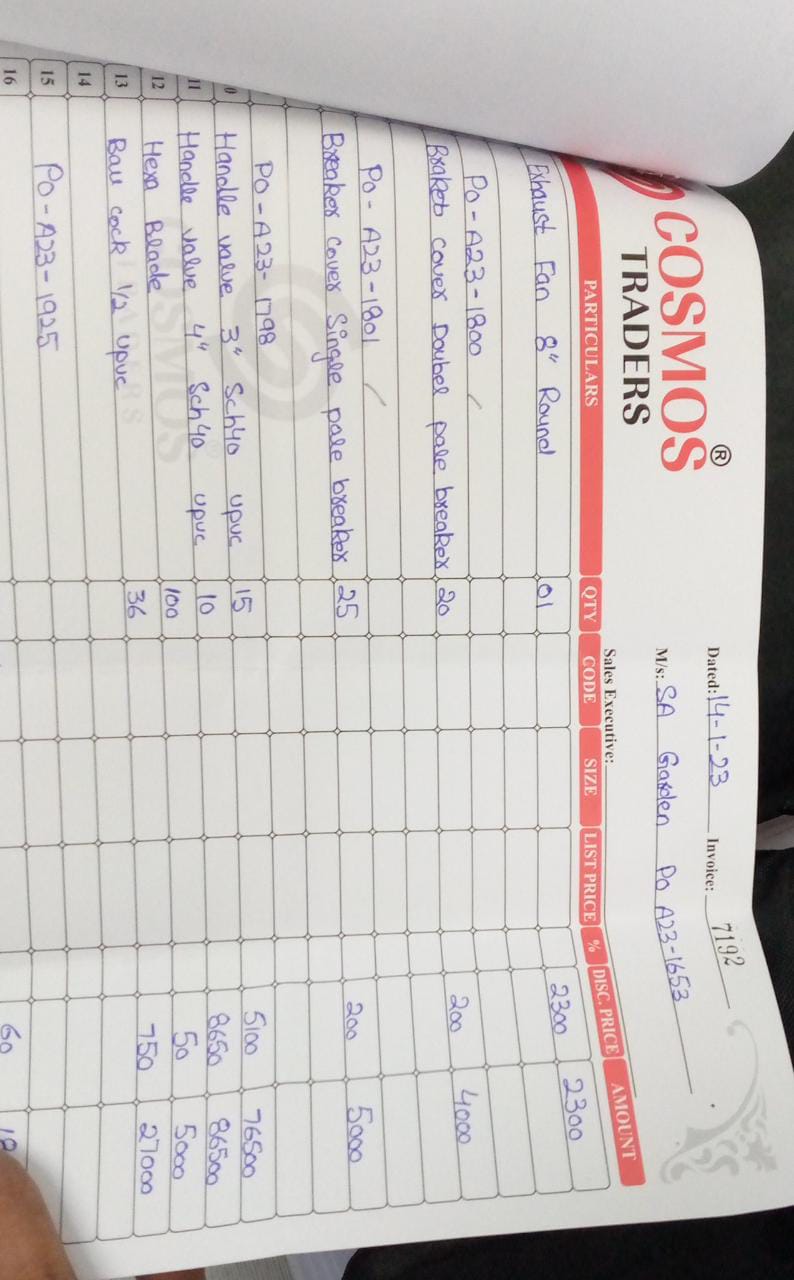 COSMOS®
TRADERS
Dated: 14-1-23 Invoice: 7192
M/s: SA Garden PO A23-1653
Sales Executive:
PARTICULARS QTY CODE SIZE LIST PRICE % DISC. PRICE AMOUNT
Exhaust Fan 8" Round 01 2300 2300
PO-A23-1800
Braket cover Doubel pale breaker 20 200 4000
PO-A23-1801
Breaker Cover Single pale breaker 25 200 5000
PO-A23-1798
0 Handle valve 3" Sch40 upvc 15 5100 76500
11 Handle valve 4" Sch40 upvc 10 8650 86500
12 Hexa Blade 100 50 5000
13 Ball cock 1/2 upvc 36 750 27000
14
15 PO-A23-1925
16 60